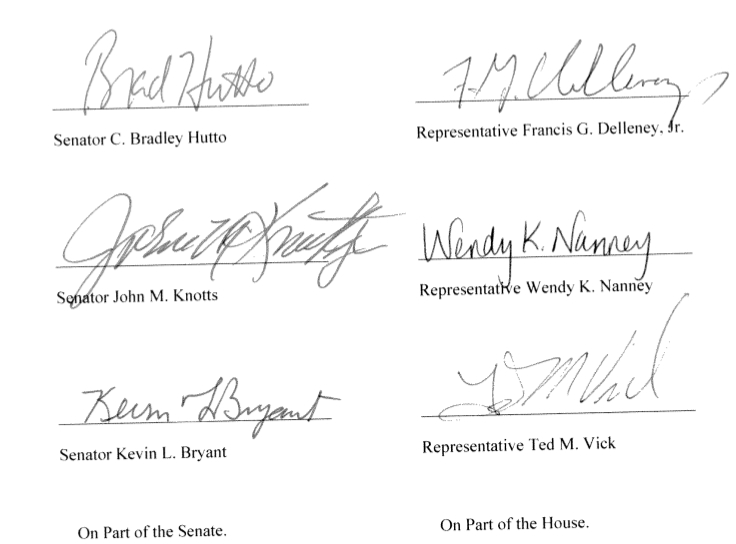 Brad Hutto
Senator C. Bradley Hutto
Senator John M. Knotts
Kevin L Bryant
Senator Kevin L. Bryant
On Part of the Senate.
F. G. Delleney
Representative Francis G. Delleney, Jr.
Wendy K. Nanney
Representative Wendy K. Nanney
Representative Ted M. Vick
On Part of the House.